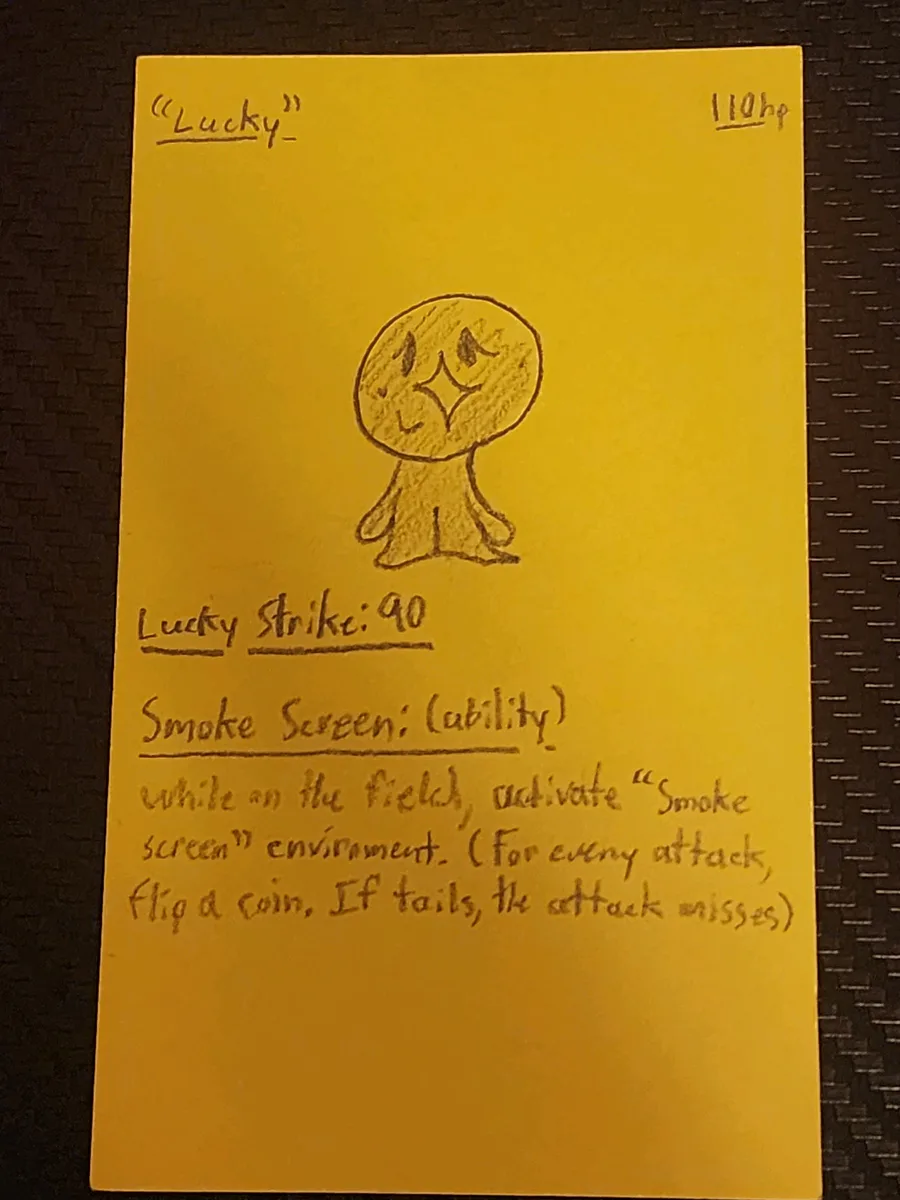 "Lucky"
110hp
Lucky Strike: 90
Smoke Screen: (ability)
while on the field, activate "Smoke
screen" enviroment. (For every attack,
flip a coin. If tails, the attack misses)